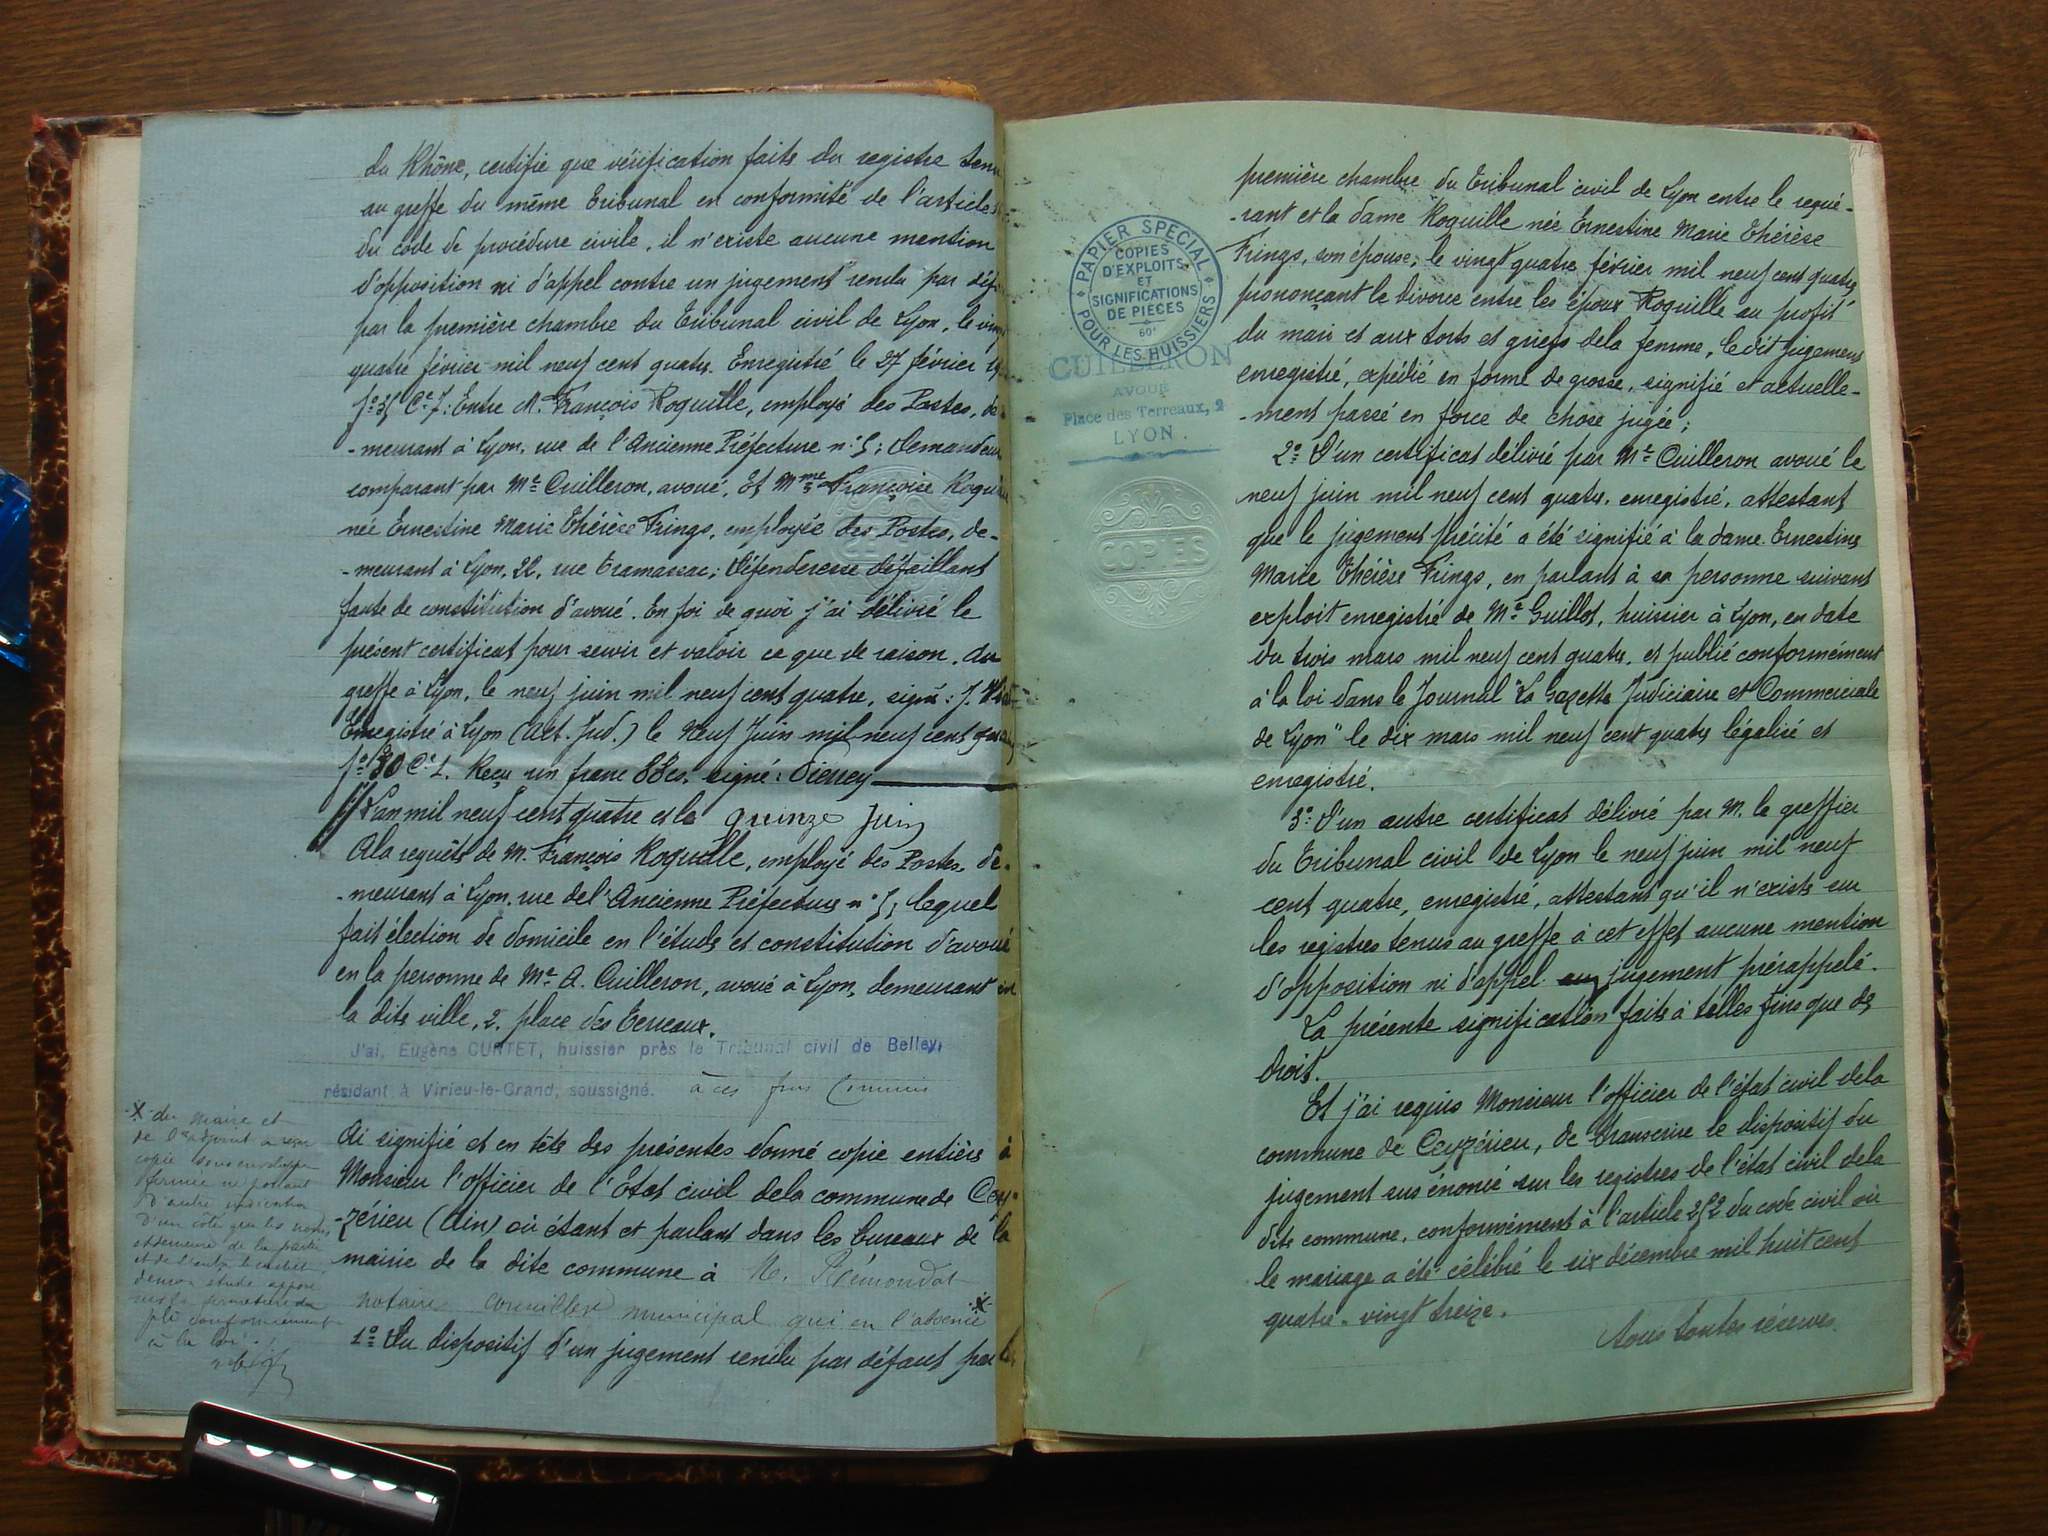 du Rhône, certifie que vérification faite du registre tenu
au greffe du même Tribunal en conformité de l'article
du code de procédure civile, il n'existe aucune mention
d'opposition ni d'appel contre un jugement rendu par
par la première chambre du Tribunal civil de Lyon, le
quatre février mil neuf cent quatre. Enregistré le 27 février
Entre M. François Roquille, employé des Postes, de-
-meurant à Lyon, rue de l'Ancienne Préfecture n° 5; Demandeur
comparant par Me Cuilleron, avoué, Et Mme Françoise
née Ernestine Marie Thérèse Frings, employée des Postes, de-
-meurant à Lyon, 22, rue Tramassac; Défenderesse défaillant
faute de constitution d'avoué. En foi de quoi j'ai délivré le
présent certificat pour servir et valoir ce que de raison. Au
greffe à Lyon, le neuf juin mil neuf cent quatre, signé: J.
Enregistré à Lyon (Act. Jud.) le Neuf Juin mil neuf cent quatre
fo 30 Ce 1. Reçu un franc 88cs. signé:
L'an mil neuf cent quatre et le quinze Juin
A la requête de M. François Roquille, employé des Postes, de-
-meurant à Lyon, rue de l'Ancienne Préfecture n° 5, lequel
fait élection de domicile en l'étude et constitution d'avoué
en la personne de Me A. Cuilleron, avoué à Lyon, demeurant en
la dite ville, 2, place des Terreaux.
J'ai, Eugène CURTET, huissier près le Tribunal civil de Belley,
résidant à Virieu-le-Grand, soussigné. à ces fins commis
Ai signifié et en tête des présentes donné copie entière à
Monsieur l'officier de l'Etat civil de la commune de Cey-
-zérieu (Ain) où étant et parlant dans les bureaux de la
mairie de la dite commune à M. Prémondat
notaire conseiller municipal qui en l'absence X
1° Du dispositif d'un jugement rendu par défaut par la
X du maire et
de l'adjoint a reçu
copie sous enveloppe
fermée ne portant
d'autre indication
d'un côté que les noms
et demeure de la partie
et de l'autre le cachet
de mon étude apposé
sur la fermeture du
pli conformément
à la loi.
PAPIER SPECIAL
COPIES
D'EXPLOITS
ET
SIGNIFICATIONS
DE PIECES
60c
POUR LES HUISSIERS
CUILLERON
AVOUÉ
Place des Terreaux, 2
LYON.
COPIES
première chambre du Tribunal civil de Lyon entre le requé-
-rant et la dame Roquille née Ernestine Marie Thérèse
Frings, son épouse; le vingt quatre février mil neuf cent quatre
prononçant le divorce entre les époux Roquille au profit
du mari et aux torts et griefs de la femme, ledit jugement
enregistré, expédié en forme de grosse, signifié et actuelle-
-ment passé en force de chose jugée;
2° D'un certificat délivré par Me Cuilleron avoué le
neuf juin mil neuf cent quatre, enregistré, attestant
que le jugement précité a été signifié à la dame Ernestine
Marie Thérèse Frings, en parlant à sa personne suivant
exploit enregistré de Me Guillot, huissier à Lyon, en date
du trois mars mil neuf cent quatre, et publié conformément
à la loi dans le Journal "La Gazette Judiciaire et Commerciale
de Lyon" le dix mars mil neuf cent quatre légalisé et
enregistré.
3° D'un autre certificat délivré par M. le greffier
du Tribunal civil de Lyon le neuf juin mil neuf
cent quatre, enregistré, attestant qu'il n'existe sur
les registres tenus au greffe à cet effet aucune mention
d'opposition ni d'appel au jugement prérappelé.
La présente signification faite à telles fins que de
droit.
Et j'ai requis Monsieur l'officier de l'état civil de la
commune de Ceyzérieu, de transcrire le dispositif du
jugement sus énoncé sur les registres de l'état civil de la
dite commune, conformément à l'article 252 du code civil où
le mariage a été célébré le six décembre mil huit cent
quatre-vingt treize.
Sous toutes réserves.